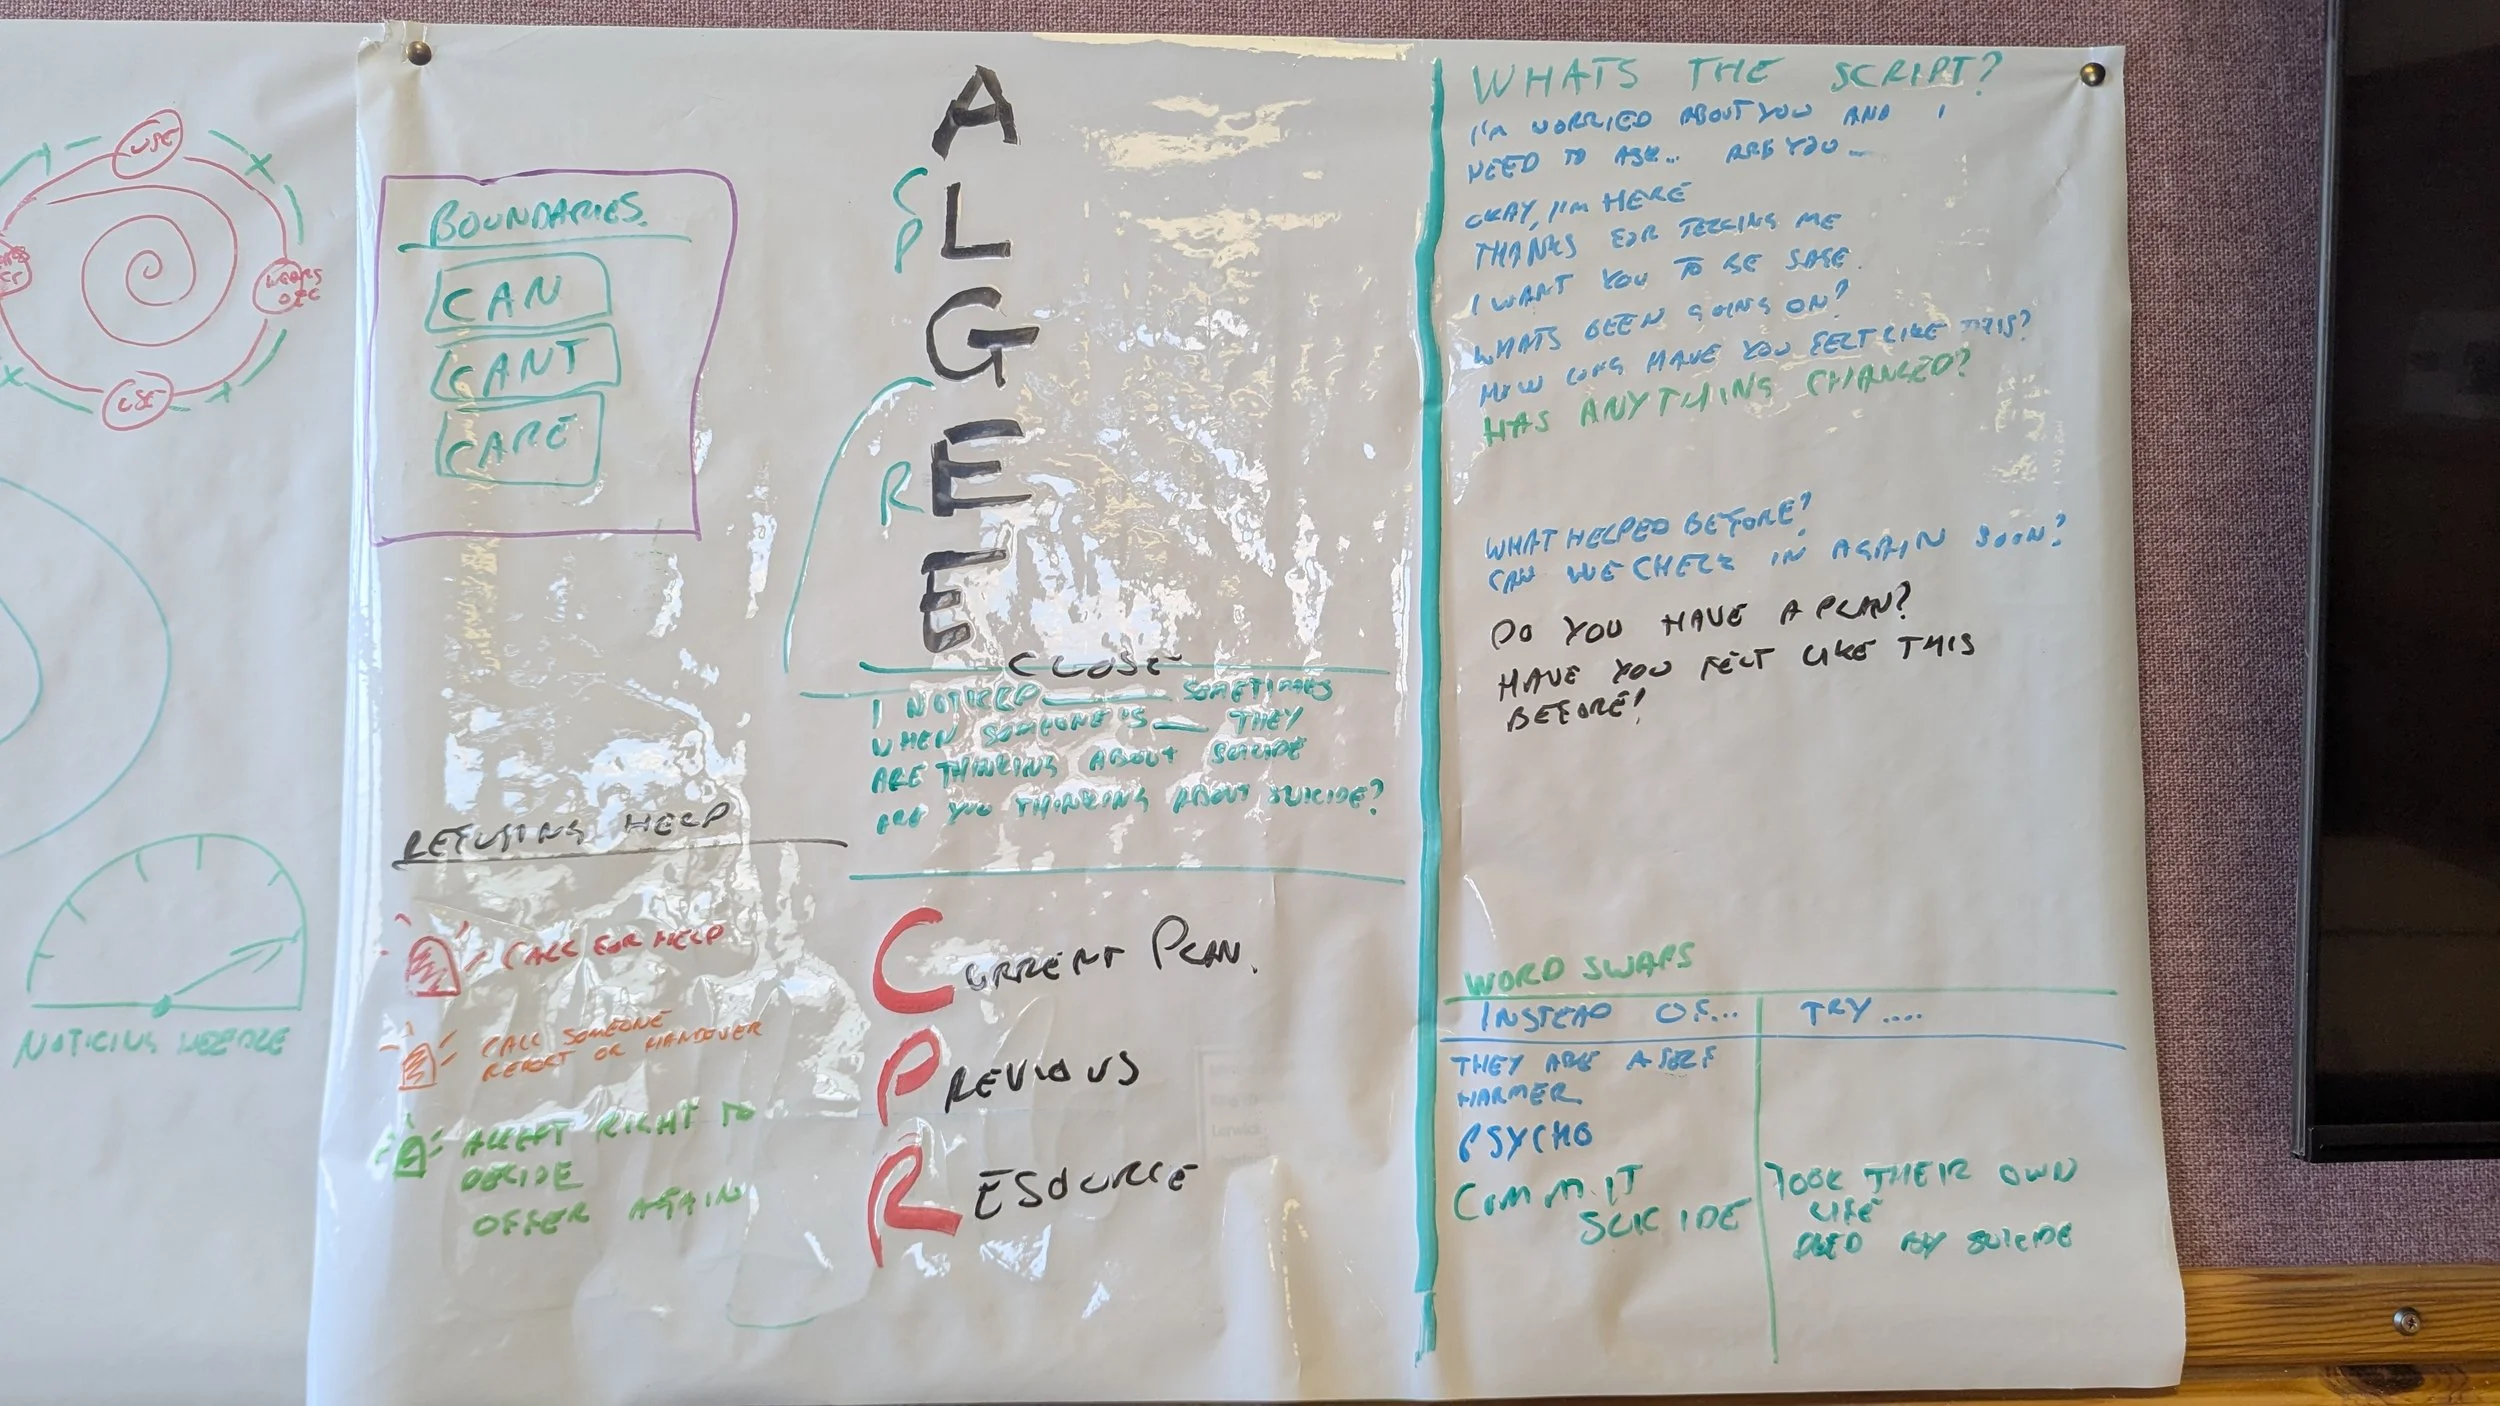 USE
WEARS
OFF
USE
NOTICING NEEDLE
BOUNDARIES.
CAN
CANT
CARE
REFUSING HELP
CALL FOR HELP
CALL SOMEONE
REPORT OR HANDOVER
ACCEPT RIGHT TO
DECIDE
OFFER AGAIN
A
L
G
E
E
C
P
R
CLOSE
I NOTICED ____ SOMETIMES
WHEN SOMEONE'S __ THEY
ARE THINKING ABOUT SUICIDE
ARE YOU THINKING ABOUT SUICIDE?
CURRENT PLAN.
PREVIOUS
RESOURCE
WHATS THE SCRIPT?
I'M WORRIED ABOUT YOU AND I
NEED TO ASK... ARE YOU...
OKAY, I'M HERE
THANKS FOR TELLING ME
I WANT YOU TO BE SAFE.
WHATS BEEN GOING ON?
HOW LONG HAVE YOU FELT LIKE THIS?
HAS ANYTHING CHANGED?
WHAT HELPED BEFORE?
CAN WE CHECK IN AGAIN SOON?
DO YOU HAVE A PLAN?
HAVE YOU FELT LIKE THIS
BEFORE?
WORD SWAPS
INSTEAD OF... TRY....
THEY ARE A SELF
HARMER.
PSYCHO
COMMIT
SUICIDE
TOOK THEIR OWN
LIFE
DIED BY SUICIDE